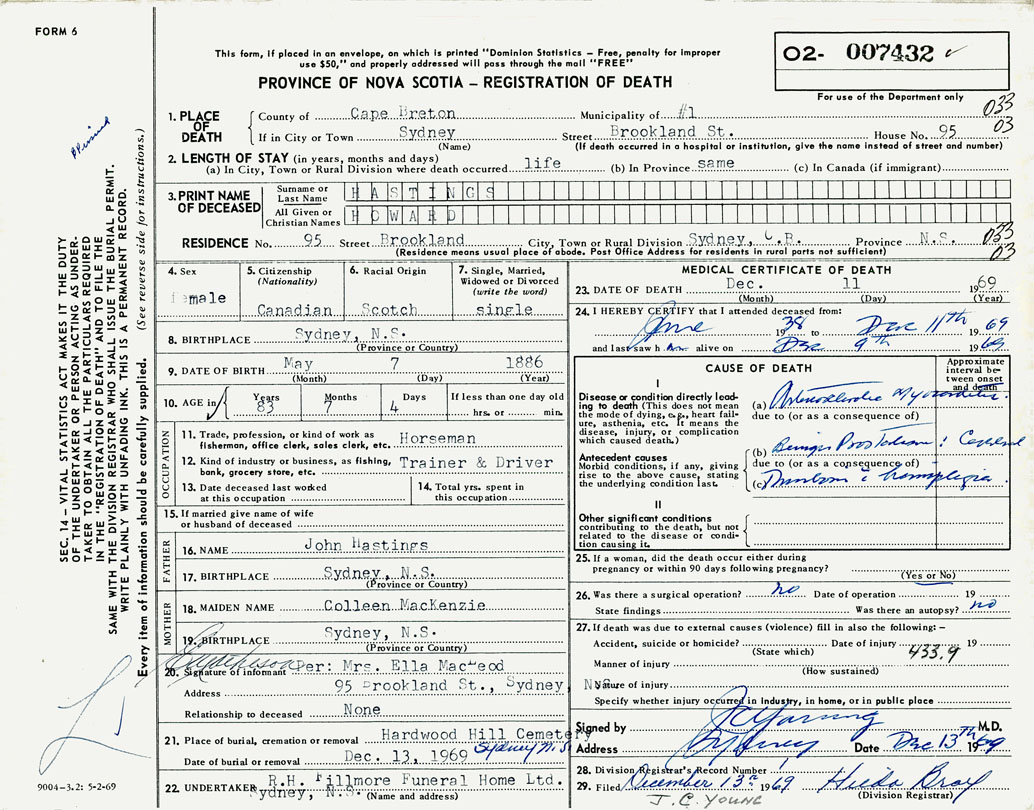 FORM 6
This form, if placed in an envelope, on which is printed "Dominion Statistics – Free, penalty for improper
use $50," and properly addressed will pass through the mail "FREE"
PROVINCE OF NOVA SCOTIA – REGISTRATION OF DEATH
02- 007432
For use of the Department only
033
03
1. PLACE OF DEATH
County of Cape Breton Municipality of #1
If in City or Town Sydney Street Brookland St. House No. 95
(Name) (If death occurred in a hospital or institution, give the name instead of street and number)
2. LENGTH OF STAY (in years, months and days)
(a) In City, Town or Rural Division where death occurred life (b) In Province same (c) In Canada (if immigrant)
3. PRINT NAME OF DECEASED
Surname or Last Name HASTINGS
All Given or Christian Names HOWARD
RESIDENCE No. 95 Street Brookland City, Town or Rural Division Sydney, C.B. Province N.S.
(Residence means usual place of abode. Post Office Address for residents in rural parts not sufficient)
033
03
4. Sex
emale
5. Citizenship
(Nationality)
Canadian
6. Racial Origin
Scotch
7. Single, Married,
Widowed or Divorced
(write the word)
single
8. BIRTHPLACE Sydney, N.S.
(Province or Country)
9. DATE OF BIRTH May 7 1886
(Month) (Day) (Year)
10. AGE in Years Months Days If less than one day old
83 7 4 hrs. or min.
OCCUPATION
11. Trade, profession, or kind of work as
fishermon, office clerk, sales clerk, etc. Horseman
12. Kind of industry or business, as fishing,
bank, grocery store, etc. Trainer & Driver
13. Date deceased last worked
at this occupation
14. Total yrs. spent in
this occupation
15. If married give name of wife
or husband of deceased
FATHER
16. NAME John Hastings
17. BIRTHPLACE Sydney, N.S.
(Province or Country)
MOTHER
18. MAIDEN NAME Colleen MacKenzie
19. BIRTHPLACE Sydney, N.S.
(Province or Country)
20. Signature of informant Per: Mrs. Ella MacLeod
Address 95 Brookland St., Sydney, N.S.
Relationship to deceased None
21. Place of burial, cremation or removal Hardwood Hill Cemetery
Sydney N.S.
Date of burial or removal Dec. 13, 1969
22. UNDERTAKER R.H. Fillmore Funeral Home Ltd.
Sydney, N.S. (Name and address)
MEDICAL CERTIFICATE OF DEATH
23. DATE OF DEATH Dec. 11 1969
(Month) (Day) (Year)
24. I HEREBY CERTIFY that I attended deceased from:
June 1938 to Dec 11th 1969
and last saw h im alive on Dec 9th 1969
CAUSE OF DEATH
Approximate
interval be-
tween onset
and death
I
Disease or condition directly lead-
ing to death (This does not mean
the mode of dying, e.g., heart fail-
ure, asthenia, etc. It means the
disease, injury, or complication
which caused death.)
(a)
due to (or as a consequence of)
Antecedent causes
Morbid conditions, if any, giving
rise to the above cause, stating
the underlying condition last.
(b) Benign
due to (or as a consequence of)
(c) hemiplegia
II
Other significant conditions
contributing to the death, but not
related to the disease or condi-
tion causing it.
25. If a woman, did the death occur either during
pregnancy or within 90 days following pregnancy?
(Yes or No)
26. Was there a surgical operation? no Date of operation 19
State findings Was there an autopsy? no
27. If death was due to external causes (violence) fill in also the following: –
Accident, suicide or homicide? Date of injury 19
(State which) 433.9
Manner of injury
(How sustained)
Nature of injury
Specify whether injury occurred in Industry, in home, or in public place
Signed by J C Young M.D.
Address Sydney Date Dec 13th 1969
28. Division Registrar's Record Number
29. Filed December 13th 1969 Hilda
(Division Registrar)
J. C. YOUNG
SEC. 14 – VITAL STATISTICS ACT MAKES IT THE DUTY
OF THE UNDERTAKER OR PERSON ACTING AS UNDER-
TAKER TO OBTAIN ALL THE PARTICULARS REQUIRED
IN THE "REGISTRATION OF DEATH" AND TO FILE THE
SAME WITH THE DIVISION REGISTRAR WHO SHALL ISSUE THE BURIAL PERMIT.
WRITE PLAINLY WITH UNFADING INK. THIS IS A PERMANENT RECORD.
Every item of information should be carefully supplied. (See reverse side for instructions.)
9004-3.2: 5-2-69